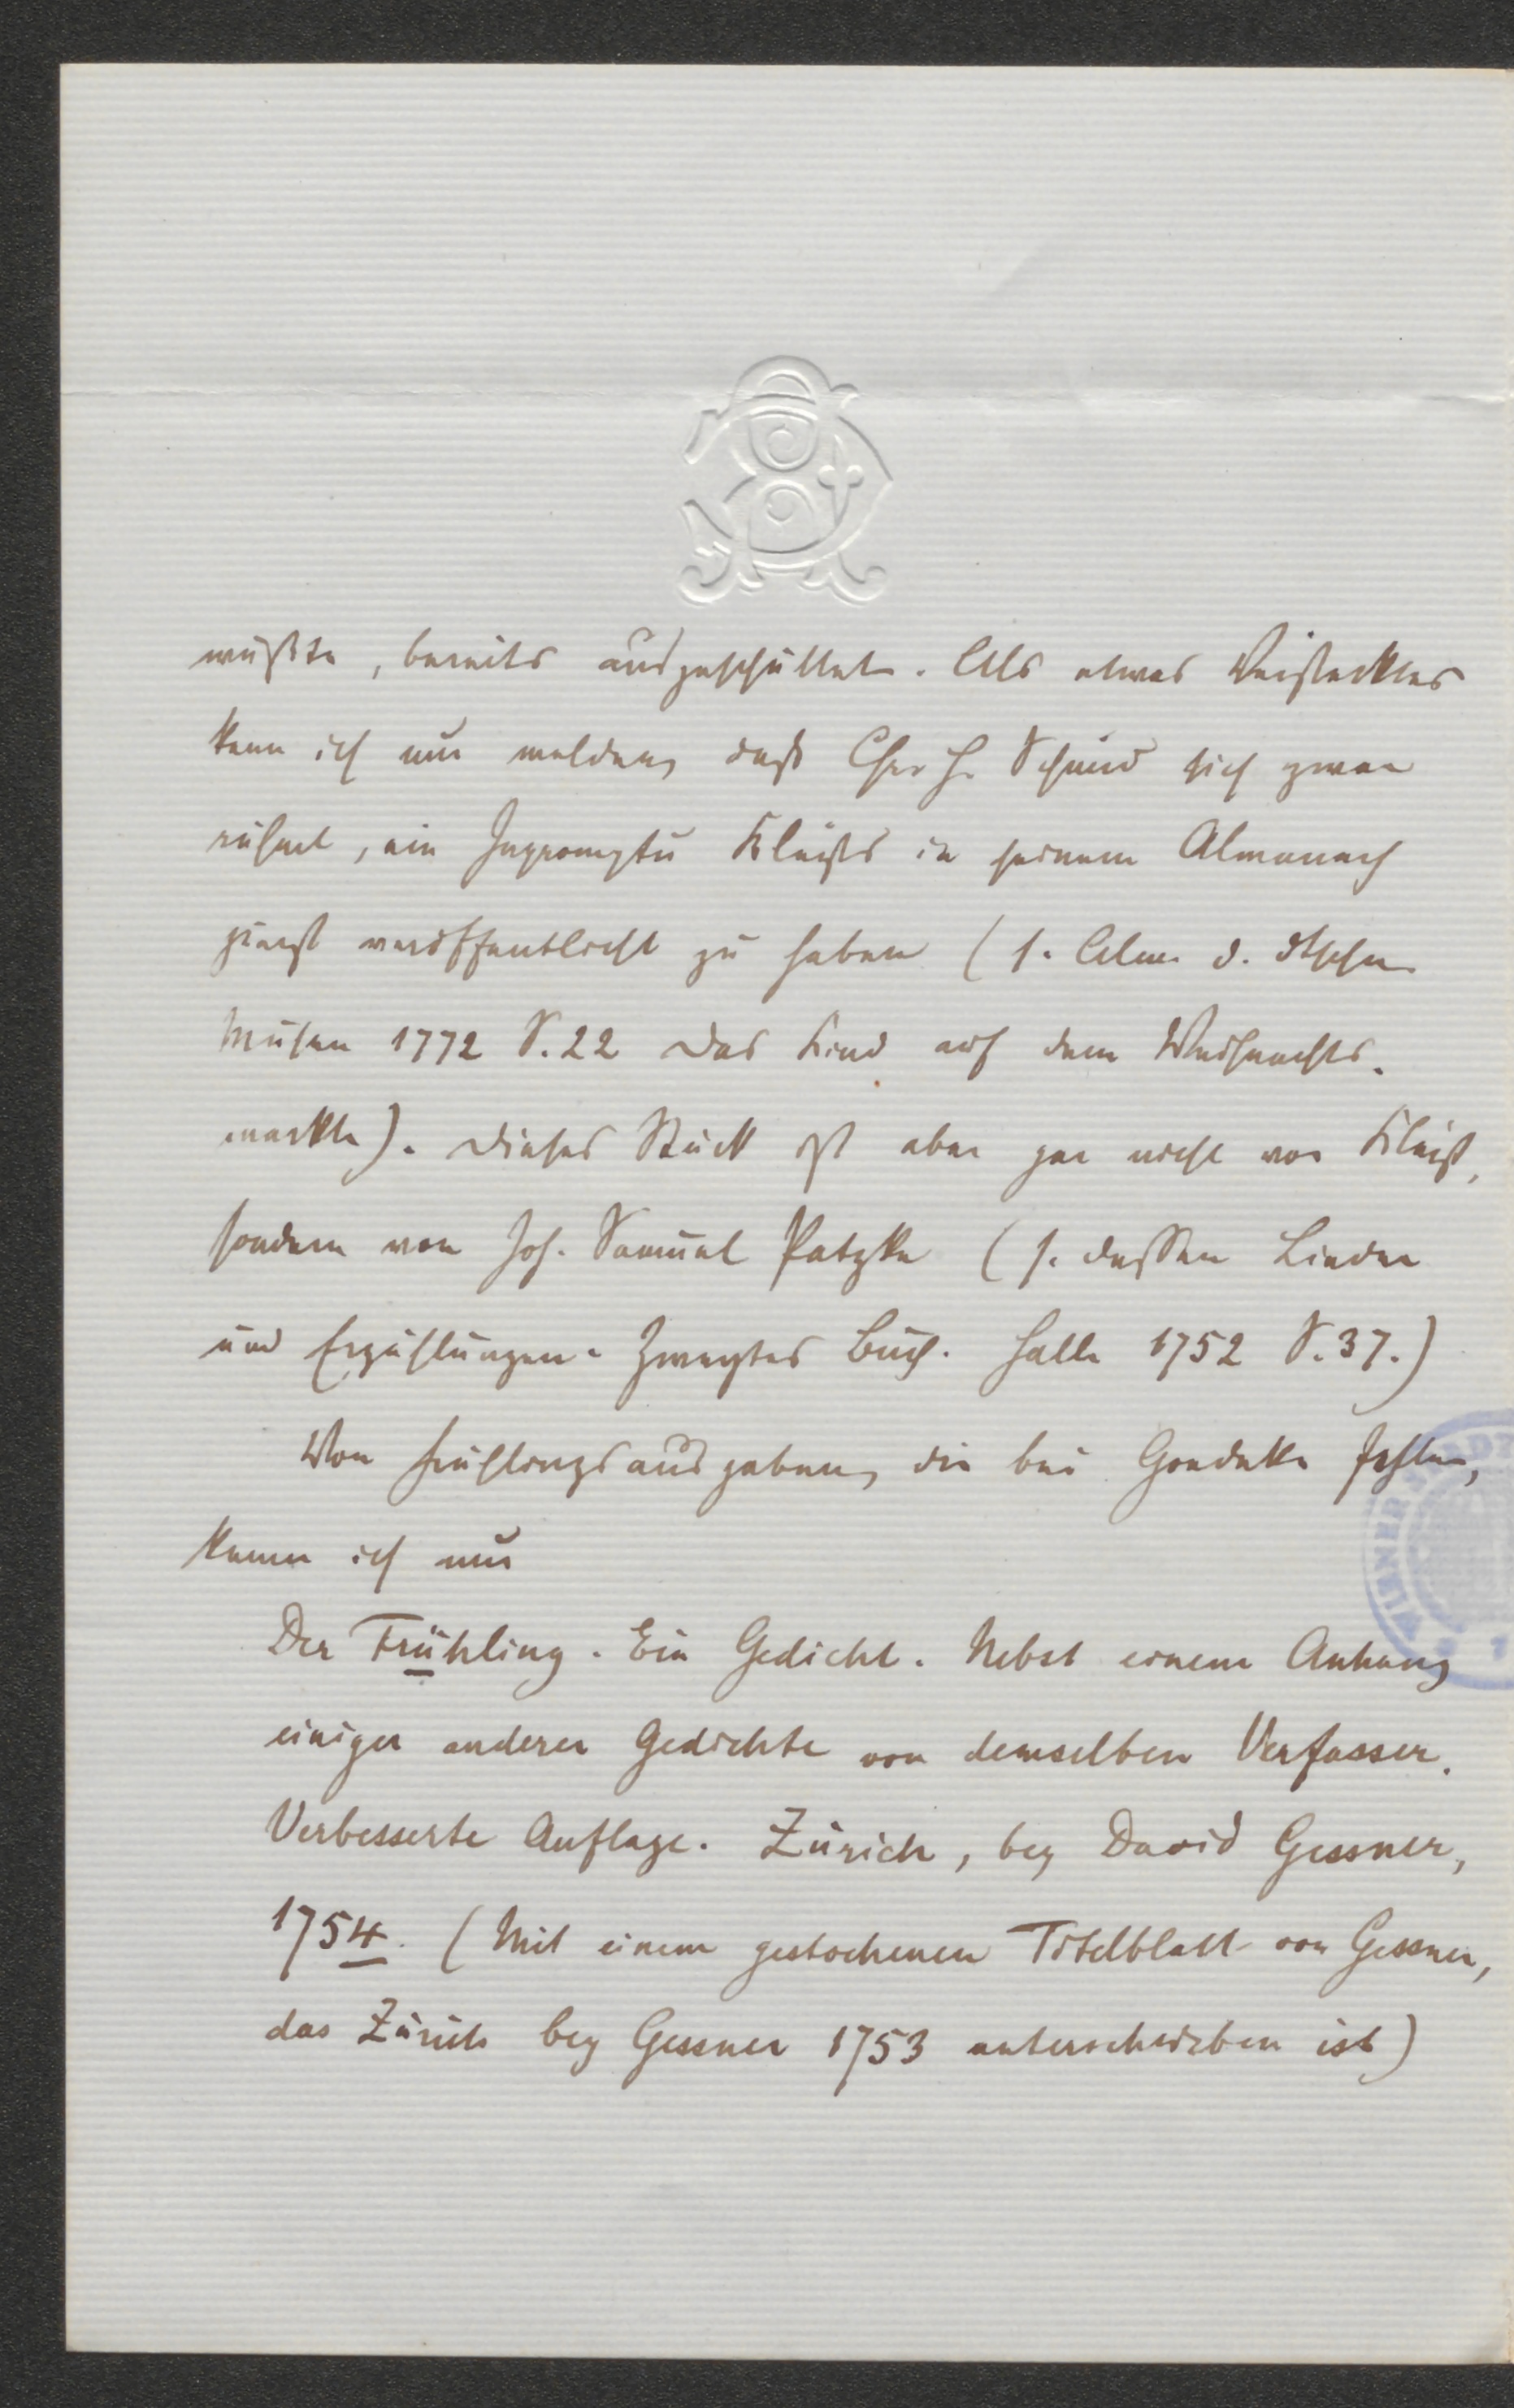 wußte, bereits ausgeschüttet. Als etwas Verstecktes
kann ich nur melden, daß Chr. H. Schmid sich zwar
rühmt, ein Inpromptu Kleists in seinem Almanach
zuerst veröffentlicht zu haben (s. Alm. d. dtschn
Musen 1772 S. 22 Das Kind auf dem Weihnachts-
markte). Dieses Stück ist aber gar nicht von Kleist,
sondern von Joh. Samuel Patzke (s. dessen Lieder
und Erzählungen. Zweytes Buch. Halle 1752 S. 37.)
Von Frühlingsausgaben, die bei Goedeke fehlen,
kenne ich nur
Der Frühling. Ein Gedicht. Nebst einem Anhang
einiger anderer Gedichte von demselben Verfasser.
Verbesserte Auflage. Zürich, bey David Gessner,
1754. (Mit einem gestochenen Titelblatt von Gessner,
das Zürich bey Gessner 1753 unterschrieben ist)
WIENER STADT